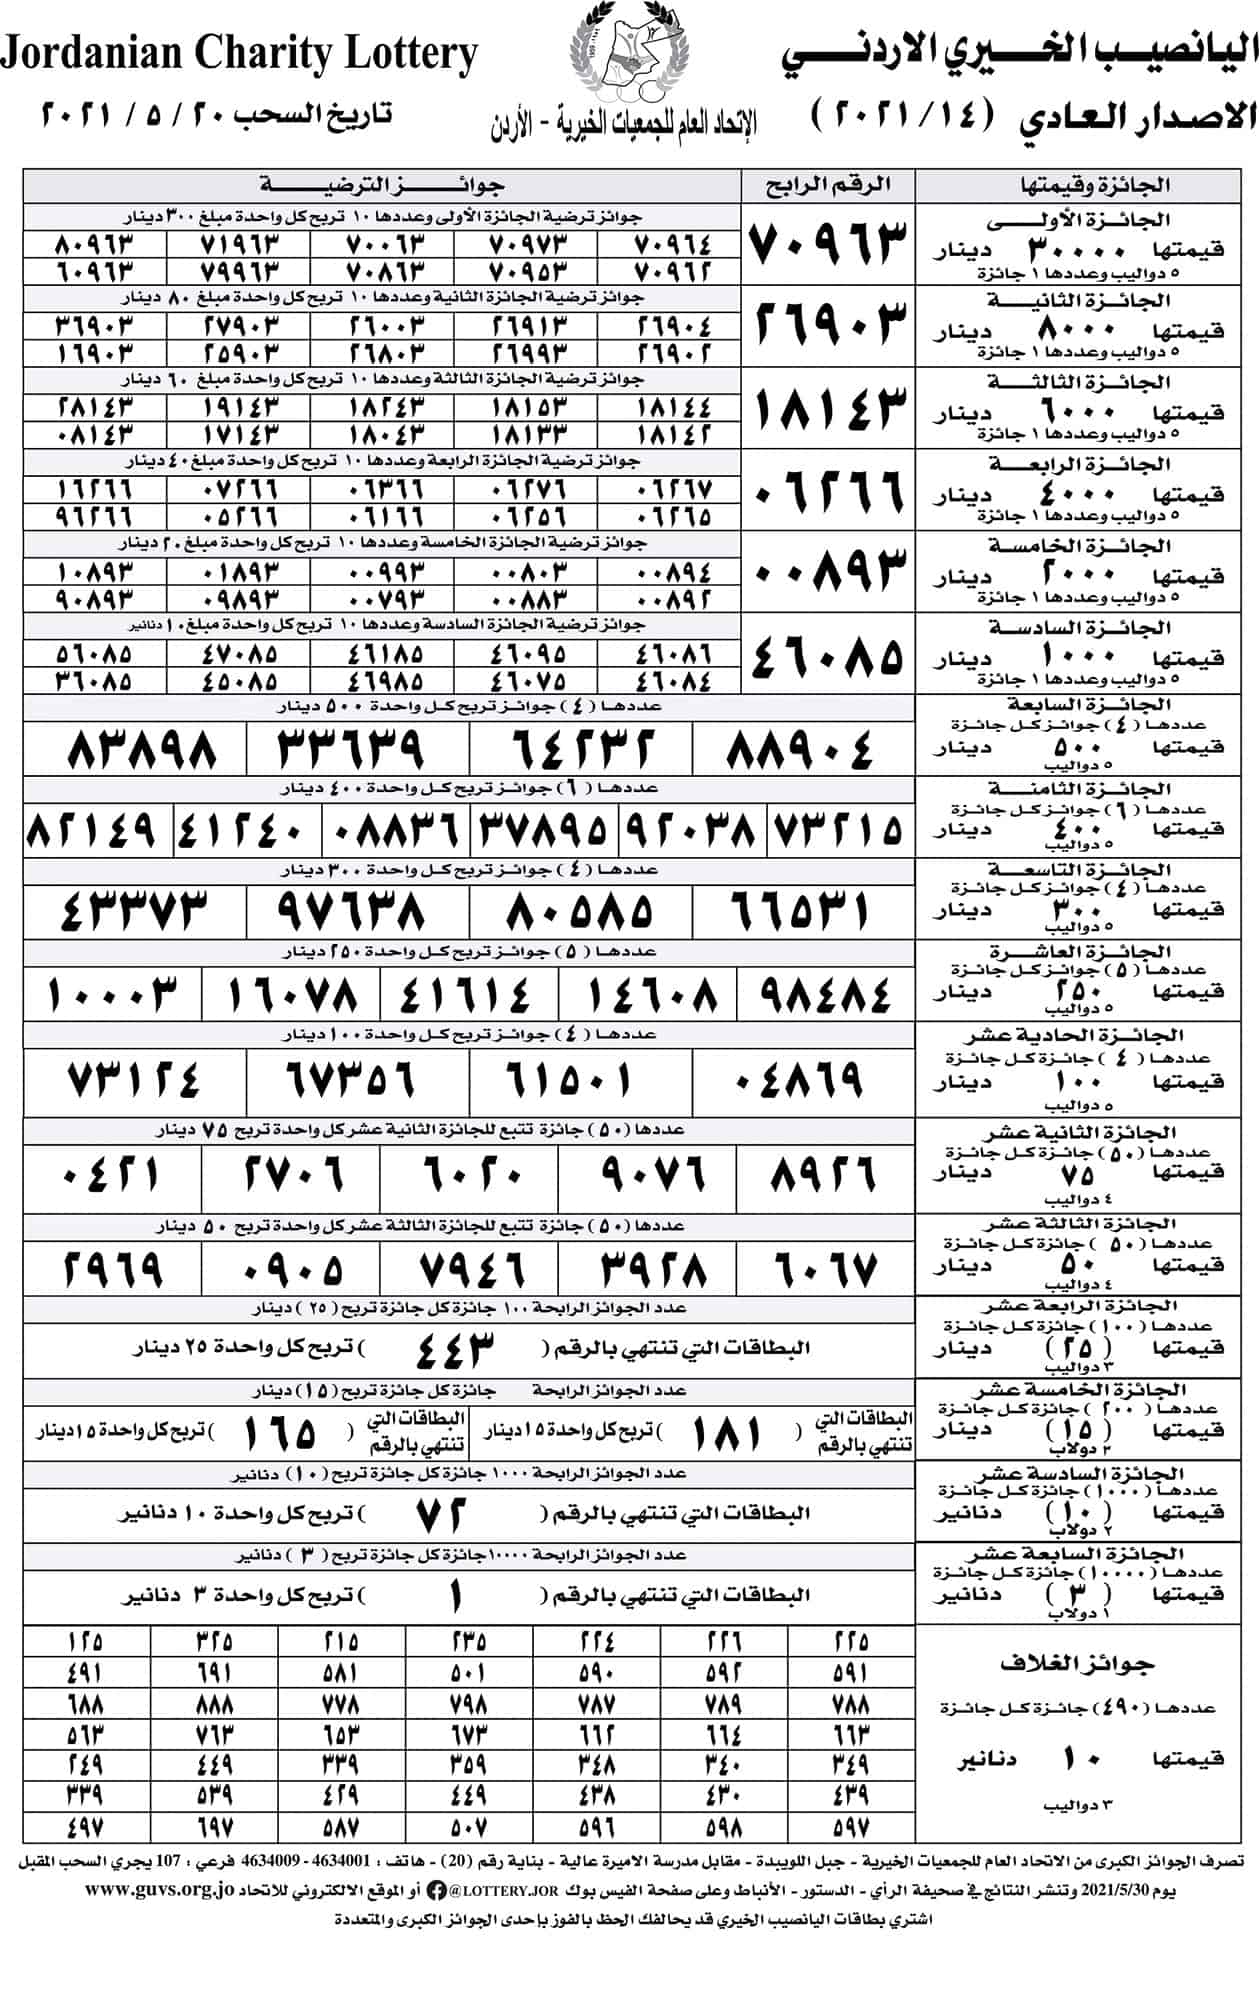 اليانصيب الخيري الاردني
Jordanian Charity Lottery
الاصدار العادي (٢٠٢١/١٤)
الإتحاد العام للجمعيات الخيرية - الأردن
تاريخ السحب ٢٠ / ٥ / ٢٠٢١
الجائزة وقيمتها الرقم الرابح جوائز الترضية
الجائزة الأولى
قيمتها ٣٠٠٠٠ دينار
٥ دواليب وعددها ١ جائزة
٧٠٩٦٣
جوائز ترضية الجائزة الأولى وعددها ١٠ تربح كل واحدة مبلغ ٣٠٠ دينار
٧٠٩٦٤ ٧٠٩٧٣ ٧٠٠٦٣ ٧١٩٦٣ ٨٠٩٦٣
٧٠٩٦٢ ٧٠٩٥٣ ٧٠٨٦٣ ٧٩٩٦٣ ٦٠٩٦٣
الجائزة الثانية
قيمتها ٨٠٠٠ دينار
٥ دواليب وعددها ١ جائزة
٢٦٩٠٣
جوائز ترضية الجائزة الثانية وعددها ١٠ تربح كل واحدة مبلغ ٨٠ دينار
٢٦٩٠٤ ٢٦٩١٣ ٢٦٠٠٣ ٢٧٩٠٣ ٣٦٩٠٣
٢٦٩٠٢ ٢٦٩٩٣ ٢٦٨٠٣ ٢٥٩٠٣ ١٦٩٠٣
الجائزة الثالثة
قيمتها ٦٠٠٠ دينار
٥ دواليب وعددها ١ جائزة
١٨١٤٣
جوائز ترضية الجائزة الثالثة وعددها ١٠ تربح كل واحدة مبلغ ٦٠ دينار
١٨١٤٤ ١٨١٥٣ ١٨٢٤٣ ١٩١٤٣ ٢٨١٤٣
١٨١٤٢ ١٨١٣٣ ١٨٠٤٣ ١٧١٤٣ ٠٨١٤٣
الجائزة الرابعة
قيمتها ٤٠٠٠ دينار
٥ دواليب وعددها ١ جائزة
٠٦٢٦٦
جوائز ترضية الجائزة الرابعة وعددها ١٠ تربح كل واحدة مبلغ ٤٠ دينار
٠٦٢٦٧ ٠٦٢٧٦ ٠٦٣٦٦ ٠٧٢٦٦ ١٦٢٦٦
٠٦٢٦٥ ٠٦٢٥٦ ٠٦١٦٦ ٠٥٢٦٦ ٩٦٢٦٦
الجائزة الخامسة
قيمتها ٢٠٠٠ دينار
٥ دواليب وعددها ١ جائزة
٠٠٨٩٣
جوائز ترضية الجائزة الخامسة وعددها ١٠ تربح كل واحدة مبلغ ٢٠ دينار
٠٠٨٩٤ ٠٠٨٠٣ ٠٠٩٩٣ ٠١٨٩٣ ١٠٨٩٣
٠٠٨٩٢ ٠٠٨٨٣ ٠٠٧٩٣ ٠٩٨٩٣ ٩٠٨٩٣
الجائزة السادسة
قيمتها ١٠٠٠ دينار
٥ دواليب وعددها ١ جائزة
٤٦٠٨٥
جوائز ترضية الجائزة السادسة وعددها ١٠ تربح كل واحدة مبلغ ١٠ دنانير
٤٦٠٨٦ ٤٦٠٩٥ ٤٦١٨٥ ٤٧٠٨٥ ٥٦٠٨٥
٤٦٠٨٤ ٤٦٠٧٥ ٤٦٩٨٥ ٤٥٠٨٥ ٣٦٠٨٥
الجائزة السابعة
عددها (٤) جوائز كل جائزة
قيمتها ٥٠٠ دينار
٥ دواليب
عددها (٤) جوائز تربح كل واحدة ٥٠٠ دينار
٨٨٩٠٤ ٦٤٢٣٢ ٣٣٦٣٩ ٨٣٨٩٨
الجائزة الثامنة
عددها (٦) جوائز كل جائزة
قيمتها ٤٠٠ دينار
٥ دواليب
عددها (٦) جوائز تربح كل واحدة ٤٠٠ دينار
٧٣٢١٥ ٩٢٠٣٨ ٣٧٨٩٥ ٠٨٨٣٦ ٤١٢٤٠ ٨٢١٤٩
الجائزة التاسعة
عددها (٤) جوائز كل جائزة
قيمتها ٣٠٠ دينار
٥ دواليب
عددها (٤) جوائز تربح كل واحدة ٣٠٠ دينار
٦٦٥٣١ ٨٠٥٨٥ ٩٧٦٣٨ ٤٣٣٧٣
الجائزة العاشرة
عددها (٥) جوائز كل جائزة
قيمتها ٢٥٠ دينار
٥ دواليب
عددها (٥) جوائز تربح كل واحدة ٢٥٠ دينار
٩٨٤٨٤ ١٤٦٠٨ ٤١٦١٤ ١٦٠٧٨ ١٠٠٠٣
الجائزة الحادية عشر
عددها (٤) جائزة كل جائزة
قيمتها ١٠٠ دينار
٥ دواليب
عددها (٤) جوائز تربح كل واحدة ١٠٠ دينار
٠٤٨٦٩ ٦١٥٠١ ٦٧٣٥٦ ٧٣١٢٤
الجائزة الثانية عشر
عددها (٥٠) جائزة كل جائزة
قيمتها ٧٥ دينار
٤ دواليب
عددها (٥٠) جائزة تتبع للجائزة الثانية عشر كل واحدة تربح ٧٥ دينار
٨٩٢٦ ٩٠٧٦ ٦٠٢٠ ٢٧٠٦ ٠٤٢١
الجائزة الثالثة عشر
عددها (٥٠) جائزة كل جائزة
قيمتها ٥٠ دينار
٤ دواليب
عددها (٥٠) جائزة تتبع للجائزة الثالثة عشر كل واحدة تربح ٥٠ دينار
٦٠٦٧ ٣٩٢٨ ٧٩٤٦ ٠٩٠٥ ٢٩٦٩
الجائزة الرابعة عشر
عددها (١٠٠) جائزة كل جائزة
قيمتها (٢٥) دينار
٣ دواليب
عدد الجوائز الرابحة ١٠٠ جائزة كل جائزة تربح (٢٥) دينار
البطاقات التي تنتهي بالرقم (٤٤٣) تربح كل واحدة ٢٥ دينار
الجائزة الخامسة عشر
عددها (٢٠٠) جائزة كل جائزة
قيمتها (١٥) دينار
٢ دولاب
عدد الجوائز الرابحة جائزة كل جائزة تربح (١٥) دينار
البطاقات التي تنتهي بالرقم (١٨١) تربح كل واحدة ١٥ دينار
البطاقات التي تنتهي بالرقم (١٦٥) تربح كل واحدة ١٥ دينار
الجائزة السادسة عشر
عددها (١٠٠٠) جائزة كل جائزة
قيمتها (١٠) دنانير
٢ دولاب
عدد الجوائز الرابحة ١٠٠٠ جائزة كل جائزة تربح (١٠) دنانير
البطاقات التي تنتهي بالرقم (٧٢) تربح كل واحدة ١٠ دنانير
الجائزة السابعة عشر
عددها (١٠٠٠٠) جائزة كل جائزة
قيمتها (٣) دنانير
١ دولاب
عدد الجوائز الرابحة ١٠٠٠٠ جائزة كل جائزة تربح (٣) دنانير
البطاقات التي تنتهي بالرقم (١) تربح كل واحدة ٣ دنانير
جوائز الغلاف
عددها (٤٩٠) جائزة كل جائزة
قيمتها ١٠ دنانير
٣ دواليب
٢٢٥ ٢٢٦ ٢٢٤ ٢٣٥ ٢١٥ ٣٢٥ ١٢٥
٥٩١ ٥٩٢ ٥٩٠ ٥٠١ ٥٨١ ٦٩١ ٤٩١
٧٨٨ ٧٨٩ ٧٨٧ ٧٩٨ ٧٧٨ ٨٨٨ ٦٨٨
٦٦٣ ٦٦٤ ٦٦٢ ٦٧٣ ٦٥٣ ٧٦٣ ٥٦٣
٣٤٩ ٣٤٠ ٣٤٨ ٣٥٩ ٣٣٩ ٤٤٩ ٢٤٩
٤٣٩ ٤٣٠ ٤٣٨ ٤٤٩ ٤٢٩ ٥٣٩ ٣٣٩
٥٩٧ ٥٩٨ ٥٩٦ ٥٠٧ ٥٨٧ ٦٩٧ ٤٩٧
تصرف الجوائز الكبرى من الاتحاد العام للجمعيات الخيرية - جبل اللويبدة - مقابل مدرسة الاميرة عالية - بناية رقم (20) - هاتف : 4634001 - 4634009 فرعي : 107 يجري السحب المقبل
يوم 2021/5/30 وتنشر النتائج في صحيفة الرأي - الدستور - الأنباط وعلى صفحة الفيس بوك @LOTTERY.JOR أو الموقع الالكتروني للاتحاد www.guvs.org.jo
اشتري بطاقات اليانصيب الخيري قد يحالفك الحظ بالفوز بإحدى الجوائز الكبرى والمتعددة